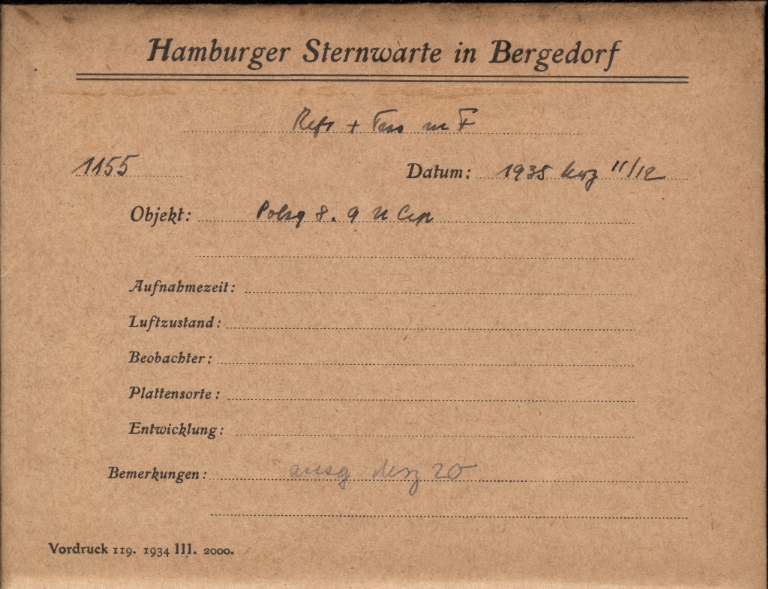 Hamburger Sternwarte in Bergedorf
Refr + Tess m F
1155 Datum: 1935 11/12
Objekt: Polsq 8. 9 U Cep
Aufnahmezeit:
Luftzustand:
Beobachter:
Plattensorte:
Entwicklung:
Bemerkungen: ausg 20
Vordruck 119. 1934 III. 2000.